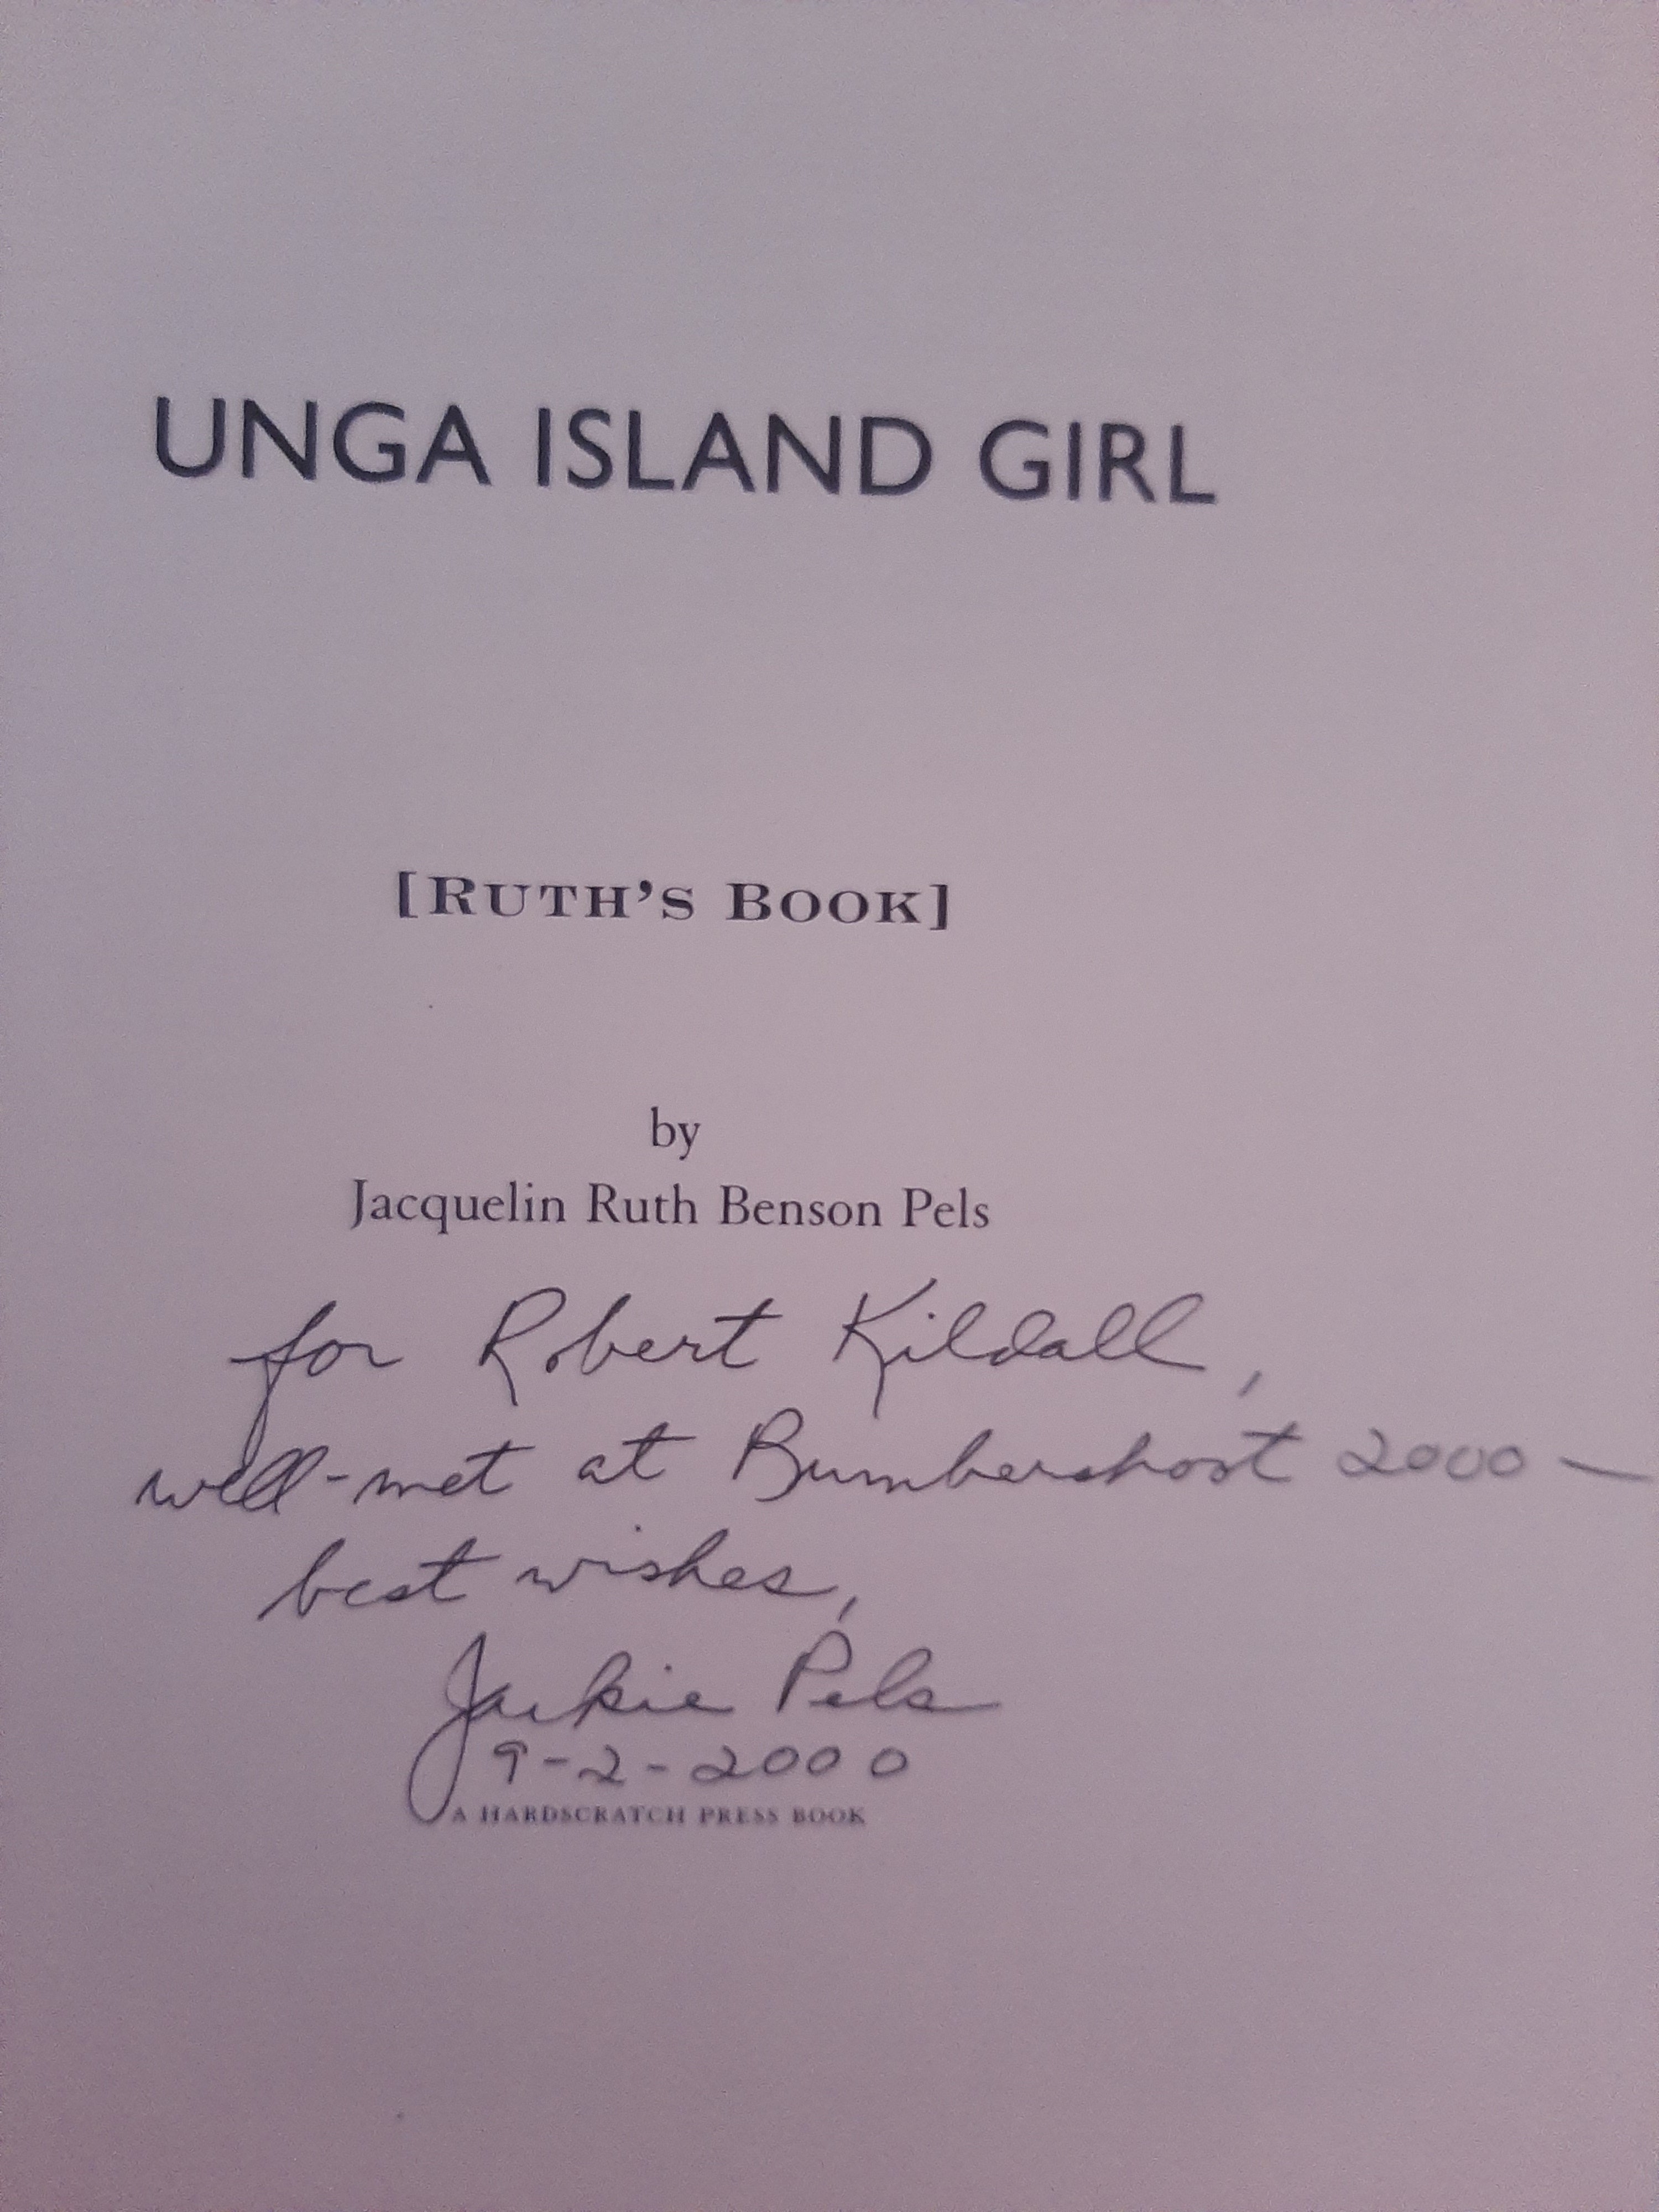 UNGA ISLAND GIRL
[RUTH'S BOOK]
by
Jacquelin Ruth Benson Pels
for Robert Kildall,
well-met at Bumbershoot 2000 —
best wishes,
Jackie Pels
9-2-2000
A HARDSCRATCH PRESS BOOK